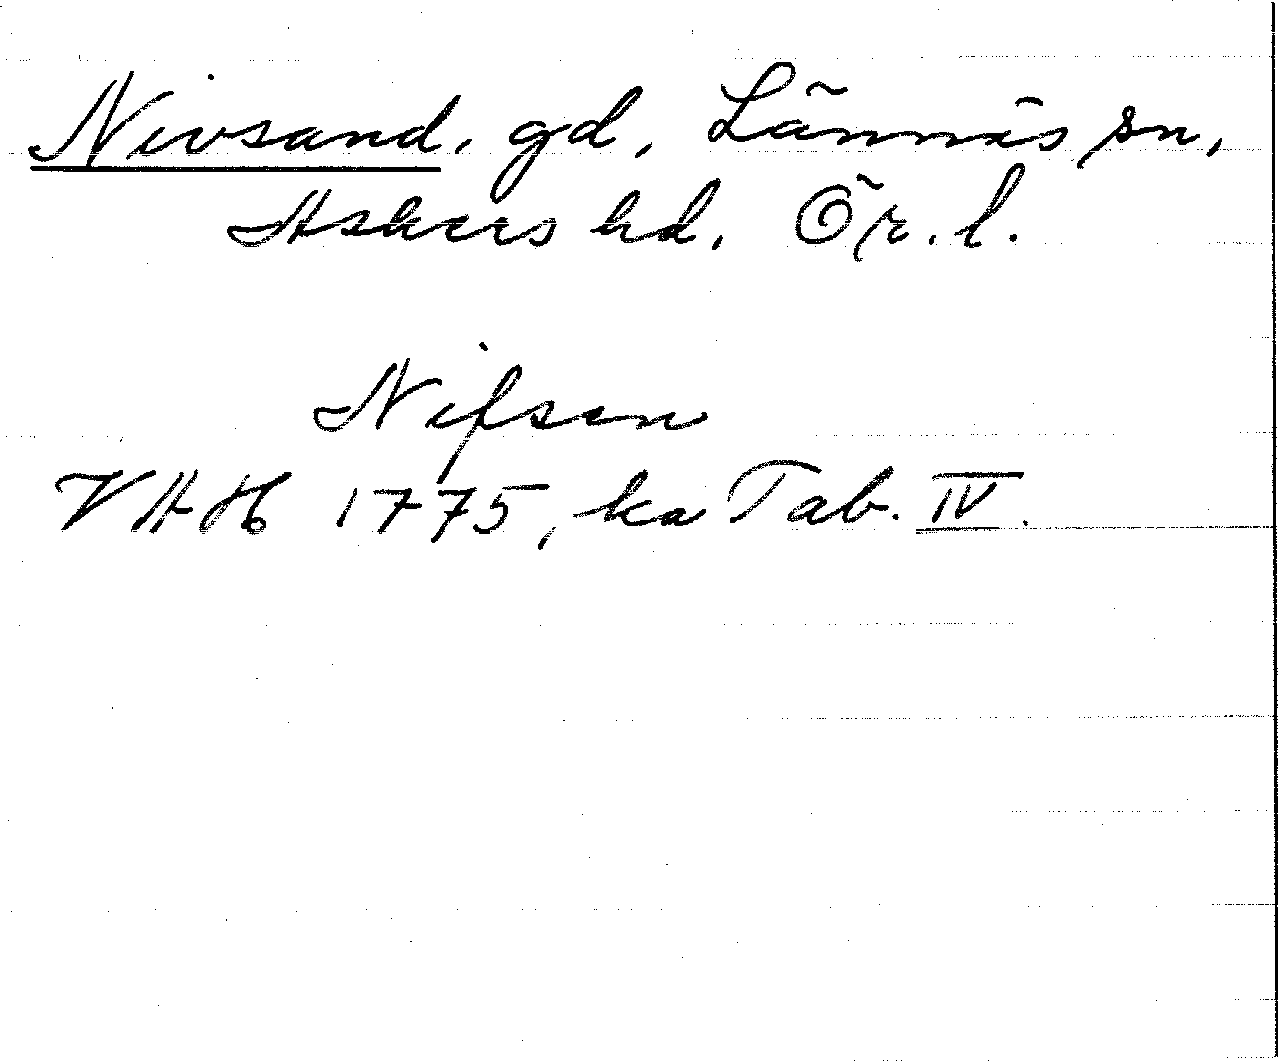 Nivsand, gd, Lännäs sn,
Askers hd, Ör. l.
Nifsen
VAH 1775, ka Tab. IV.